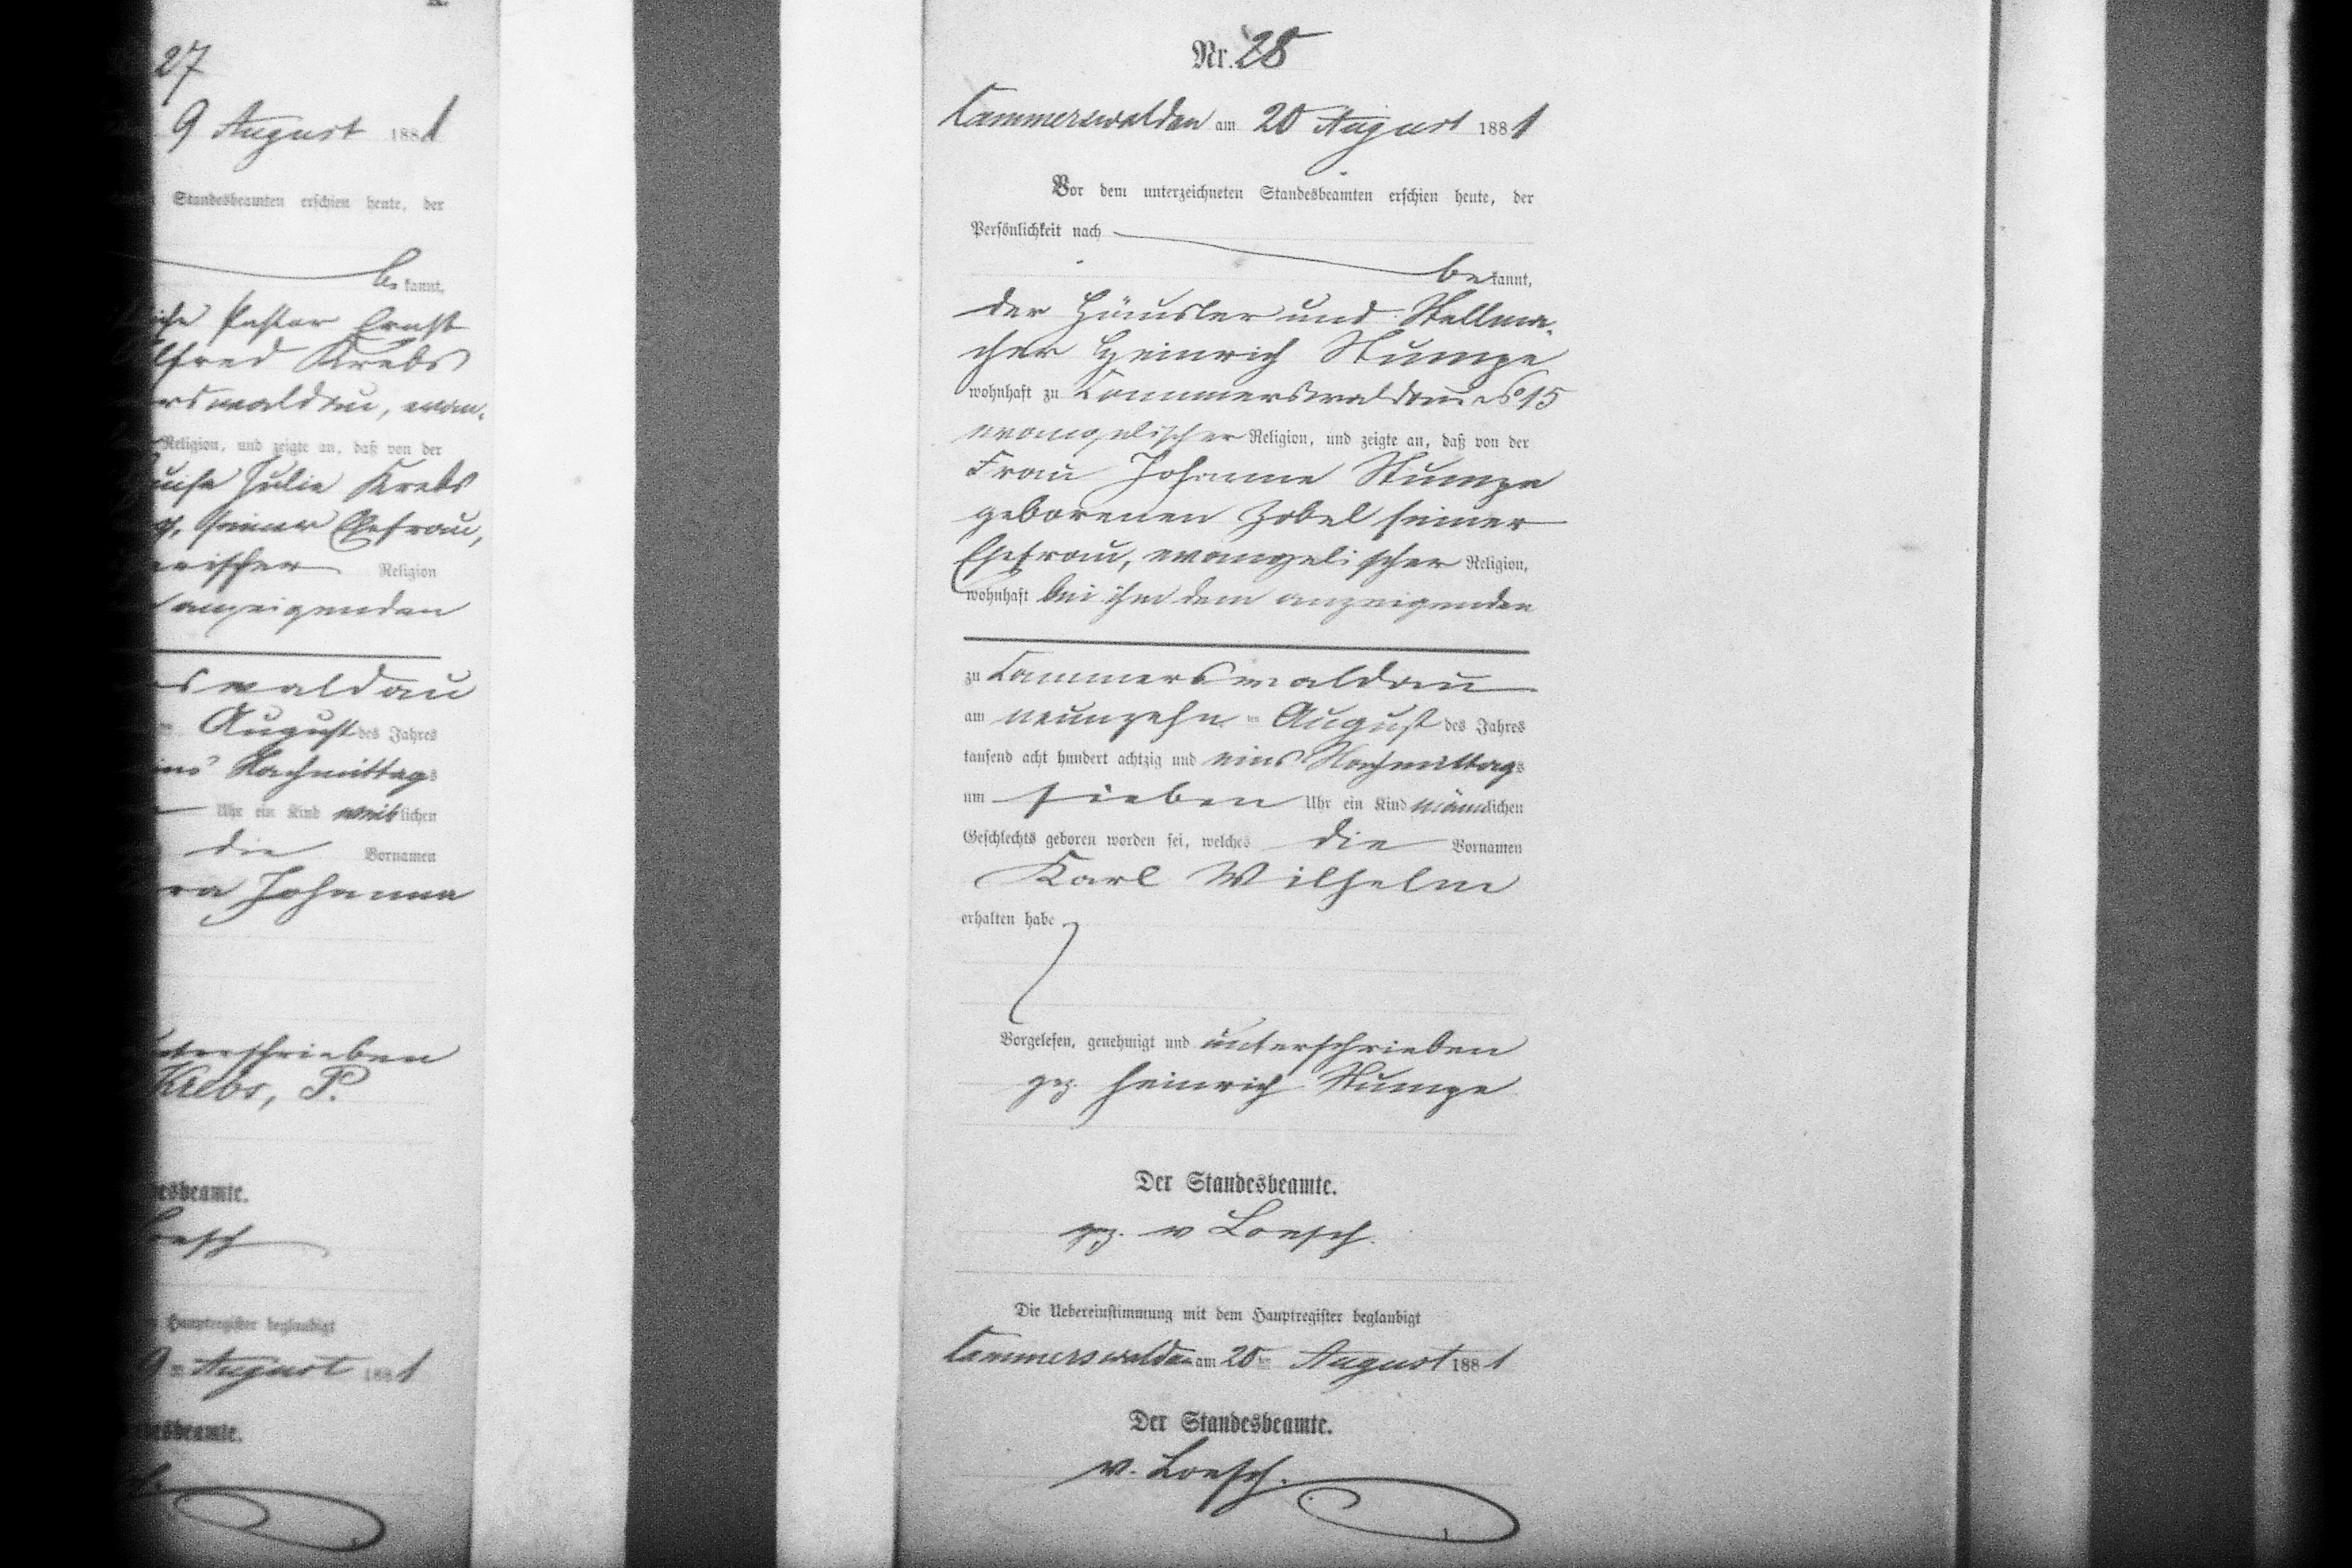 27
9 August 1881
Standesbeamten erschien heute, der
be kannt,
Pastor Ernst
lfred Krebs
rswaldau, evan-
Religion, und zeigte an, daß von der
uise Julie Krebs
seiner Ehefrau,
Religion
anzeigenden
swaldau
August des Jahres
ins Nachmittags
Uhr ein Kind weiblichen
die Vornamen
ra Johanna
unterschrieben
Krebs, P.
desbeamte.
Loesch
Hauptregister beglaubigt
9 ten August 1881
desbeamte.
Nr. 28
Cammerswaldau am 20 August 1881
Vor dem unterzeichneten Standesbeamten erschien heute, der
Persönlichkeit nach
be kannt,
der Häusler und Stellma-
cher Heinrich Stumpe
wohnhaft zu Cammerswaldau No 15
evangelischer Religion, und zeigte an, daß von der
Frau Johanne Stumpe
geborenen Zobel seiner
Ehefrau, evangelischer Religion,
wohnhaft bei ihm dem anzeigenden
zu Cammerswaldau
am neunzehn ten August des Jahres
tausend acht hundert achtzig und eins Nachmittags
um sieben Uhr ein Kind männlichen
Geschlechts geboren worden sei, welches die Vornamen
Karl Wilhelm
erhalten habe
Vorgelesen, genehmigt und unterschrieben
gez. Heinrich Stumpe
Der Standesbeamte.
gez. v Loesch.
Die Uebereinstimmung mit dem Hauptregister beglaubigt
Cammerswaldau am 20 ten August 1881
Der Standesbeamte.
v. Loesch.